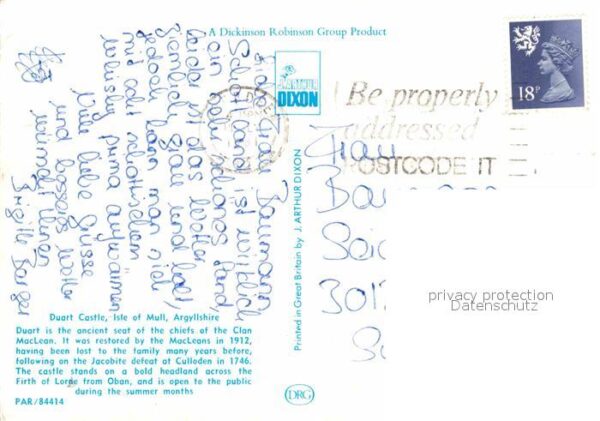 A Dickinson Robinson Group Product
J. ARTHUR
DIXON
18P
Be properly
addressed
POSTCODE IT
Liebe Frau Baumann,
Schottland ist wirklich
ein sehr schönes Land
leider ist das Wetter
ziemlich grau und kalt,
jedoch kann man sich
mit schottischem
Whisky prima aufwärmen
Viele liebe Grüsse
und besseres Wetter
wünscht Ihnen
Frau
Printed in Great Britain by J. ARTHUR DIXON
privacy protection
Datenschutz
Duart Castle, Isle of Mull, Argyllshire
Duart is the ancient seat of the chiefs of the Clan
MacLean. It was restored by the MacLeans in 1912,
having been lost to the family many years before,
following on the Jacobite defeat at Culloden in 1746.
The castle stands on a bold headland across the
Firth of Lorne from Oban, and is open to the public
during the summer months
PAR/84414
DRG